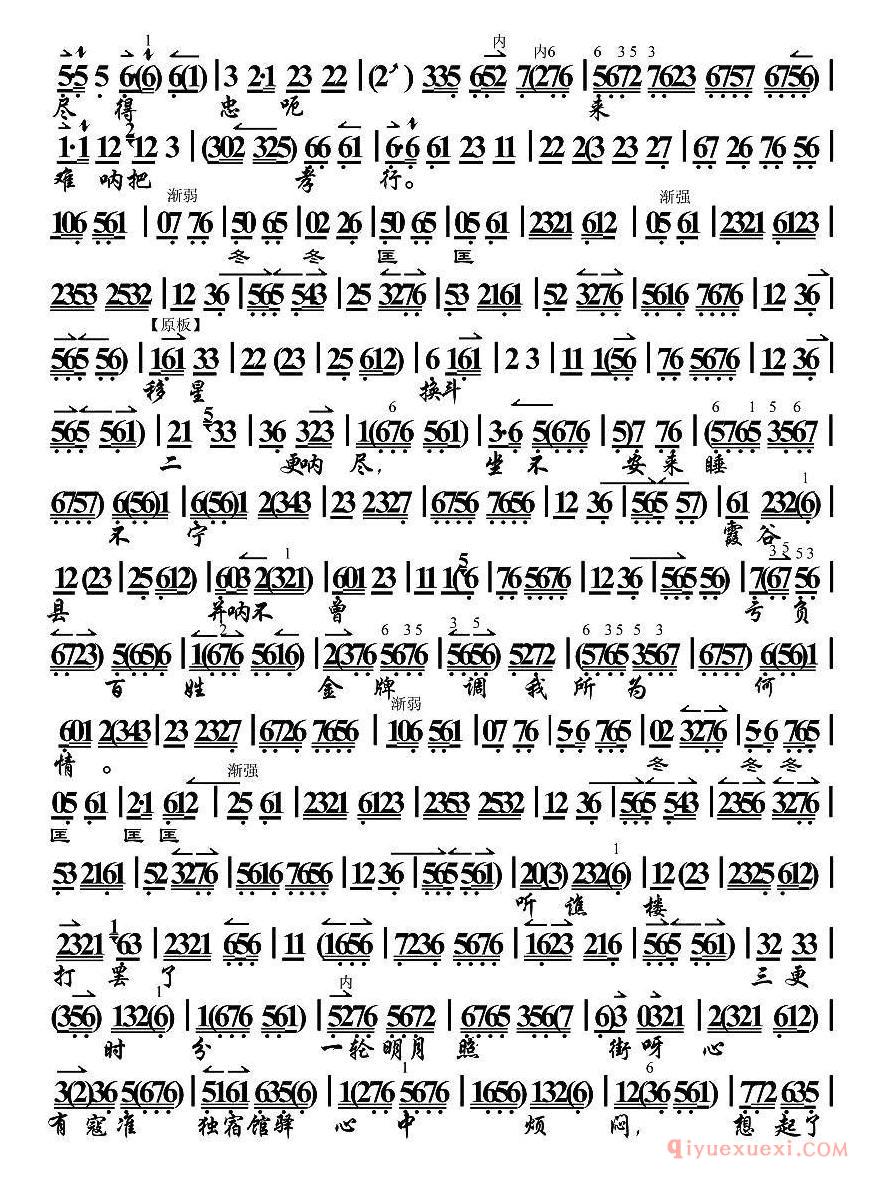 1
内 内6 6 3 5 3
5·5 5 6·(6) 6(1) | 3 2·1 23 22 | (2 ) 335 652 7(276 | 5672 7623 6757 6756) |
尽 得 忠 呃 来
1·1 12 2 12 3 | (302 325) 66 61 | 6·6 61 23 11 | 22 2(3 23 27 | 67 26 76 56 |
难 呐把 孝 行。
渐弱 渐强
106 561 | 07 76 | 50 65 | 02 26 | 50 65 | 05 61 | 2321 612 | 05 61 | 2321 6123 |
冬 冬 匡 匡
2353 2532 | 12 36 | 565 543 | 25 3276 | 53 2161 | 52 3276 | 5616 7676 | 12 36 |
【原板】
565 56) | 161 33 | 22 (23 | 25 612) | 6 161 | 2 3 | 11 1(56 | 76 5676 | 12 36 |
移 星 换斗
5 6 6 1 5 6
565 561) | 21 33 | 36 323 | 1(676 561) | 3·6 5(676 | 5)7 76 | (5765 3567 |
二 更呐 尽, 坐 不 安 来 睡
1
6757) 6(56)1 | 6(56)1 2(343 | 23 2327 | 6756 7656 | 12 36 | 565 57) | 61 232(6) |
不 宁 霞 谷
1 5 3 5 5 3
12 (23 | 25 612) | 603 2(321) | 601 23 | 11 1(6 | 76 5676 | 12 36 | 565 56) | 7(67 56 |
县 并呐不 曾 亏 负
2 6 3 5 3 5 6 3 5 5 3
6723) 5(65)6 | 1(676 5616) | 2(376 5676 | 5656) 5272 | (5765 3567 | 6757) 6(56)1 |
百 姓 金 牌 调 我 所 为 何
渐弱
601 2(343 | 23 2327 | 6726 7656 | 106 561 | 07 76 | 5·6 765 | 02 3276 | 5·6 765 |
情 。 冬 冬 冬
渐强
05 61 | 2·1 612 | 25 61 | 2321 6123 | 2353 2532 | 12 36 | 565 543 | 2356 3276 |
匡 匡 匡
1
53 2161 | 52 3276 | 5616 7656 | 12 36 | 565 561) | 20(3) 232(6) | 12 (23 | 2325 612) |
听 谯 楼
1
2321 63 | 2321 656 | 11 (1656 | 7236 5676 | 1623 216 | 565 561) | 32 33 |
打 罢 了 三 更
1 内
(356) 132(6) | 1(676 561) | 5276 5672 | 6765 356(7 | 6)3 0321 | 2(321 612) |
时 分 一轮 明月 照 街呀 心
1 6
3(2)36 5(676) | 5161 635(6) | 1(276 5676 | 1656) 132(6) | 12(36 561) | 772 635 |
有 寇 准 独宿馆驿 心 中 烦 闷, 想 起了
qiyuexuexi.COM